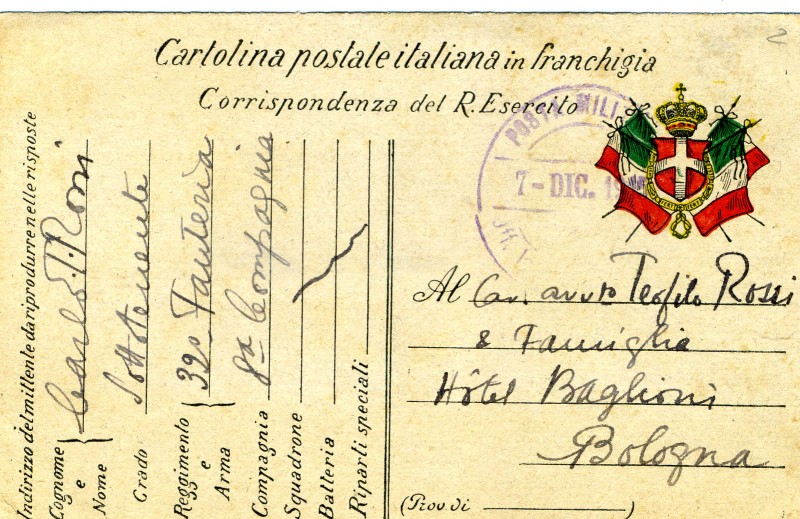 2
Cartolina postale italiana in franchigia
Corrispondenza del R. Esercito
POSTA MILI
7 - DIC. 19
Al Cav. avv.to Teofilo Rossi
& Famiglia
Hôtel Baglioni
Bologna
(Prov. di
)
Indirizzo del mittente da riprodurre nelle risposte
Cognome
e
Nome
Carlo T. Rossi
Grado
Sottotenente
Reggimento
e
Arma
32o Fanteria
Compagnia
8a Compagnia
Squadrone
Batteria
Riparti speciali